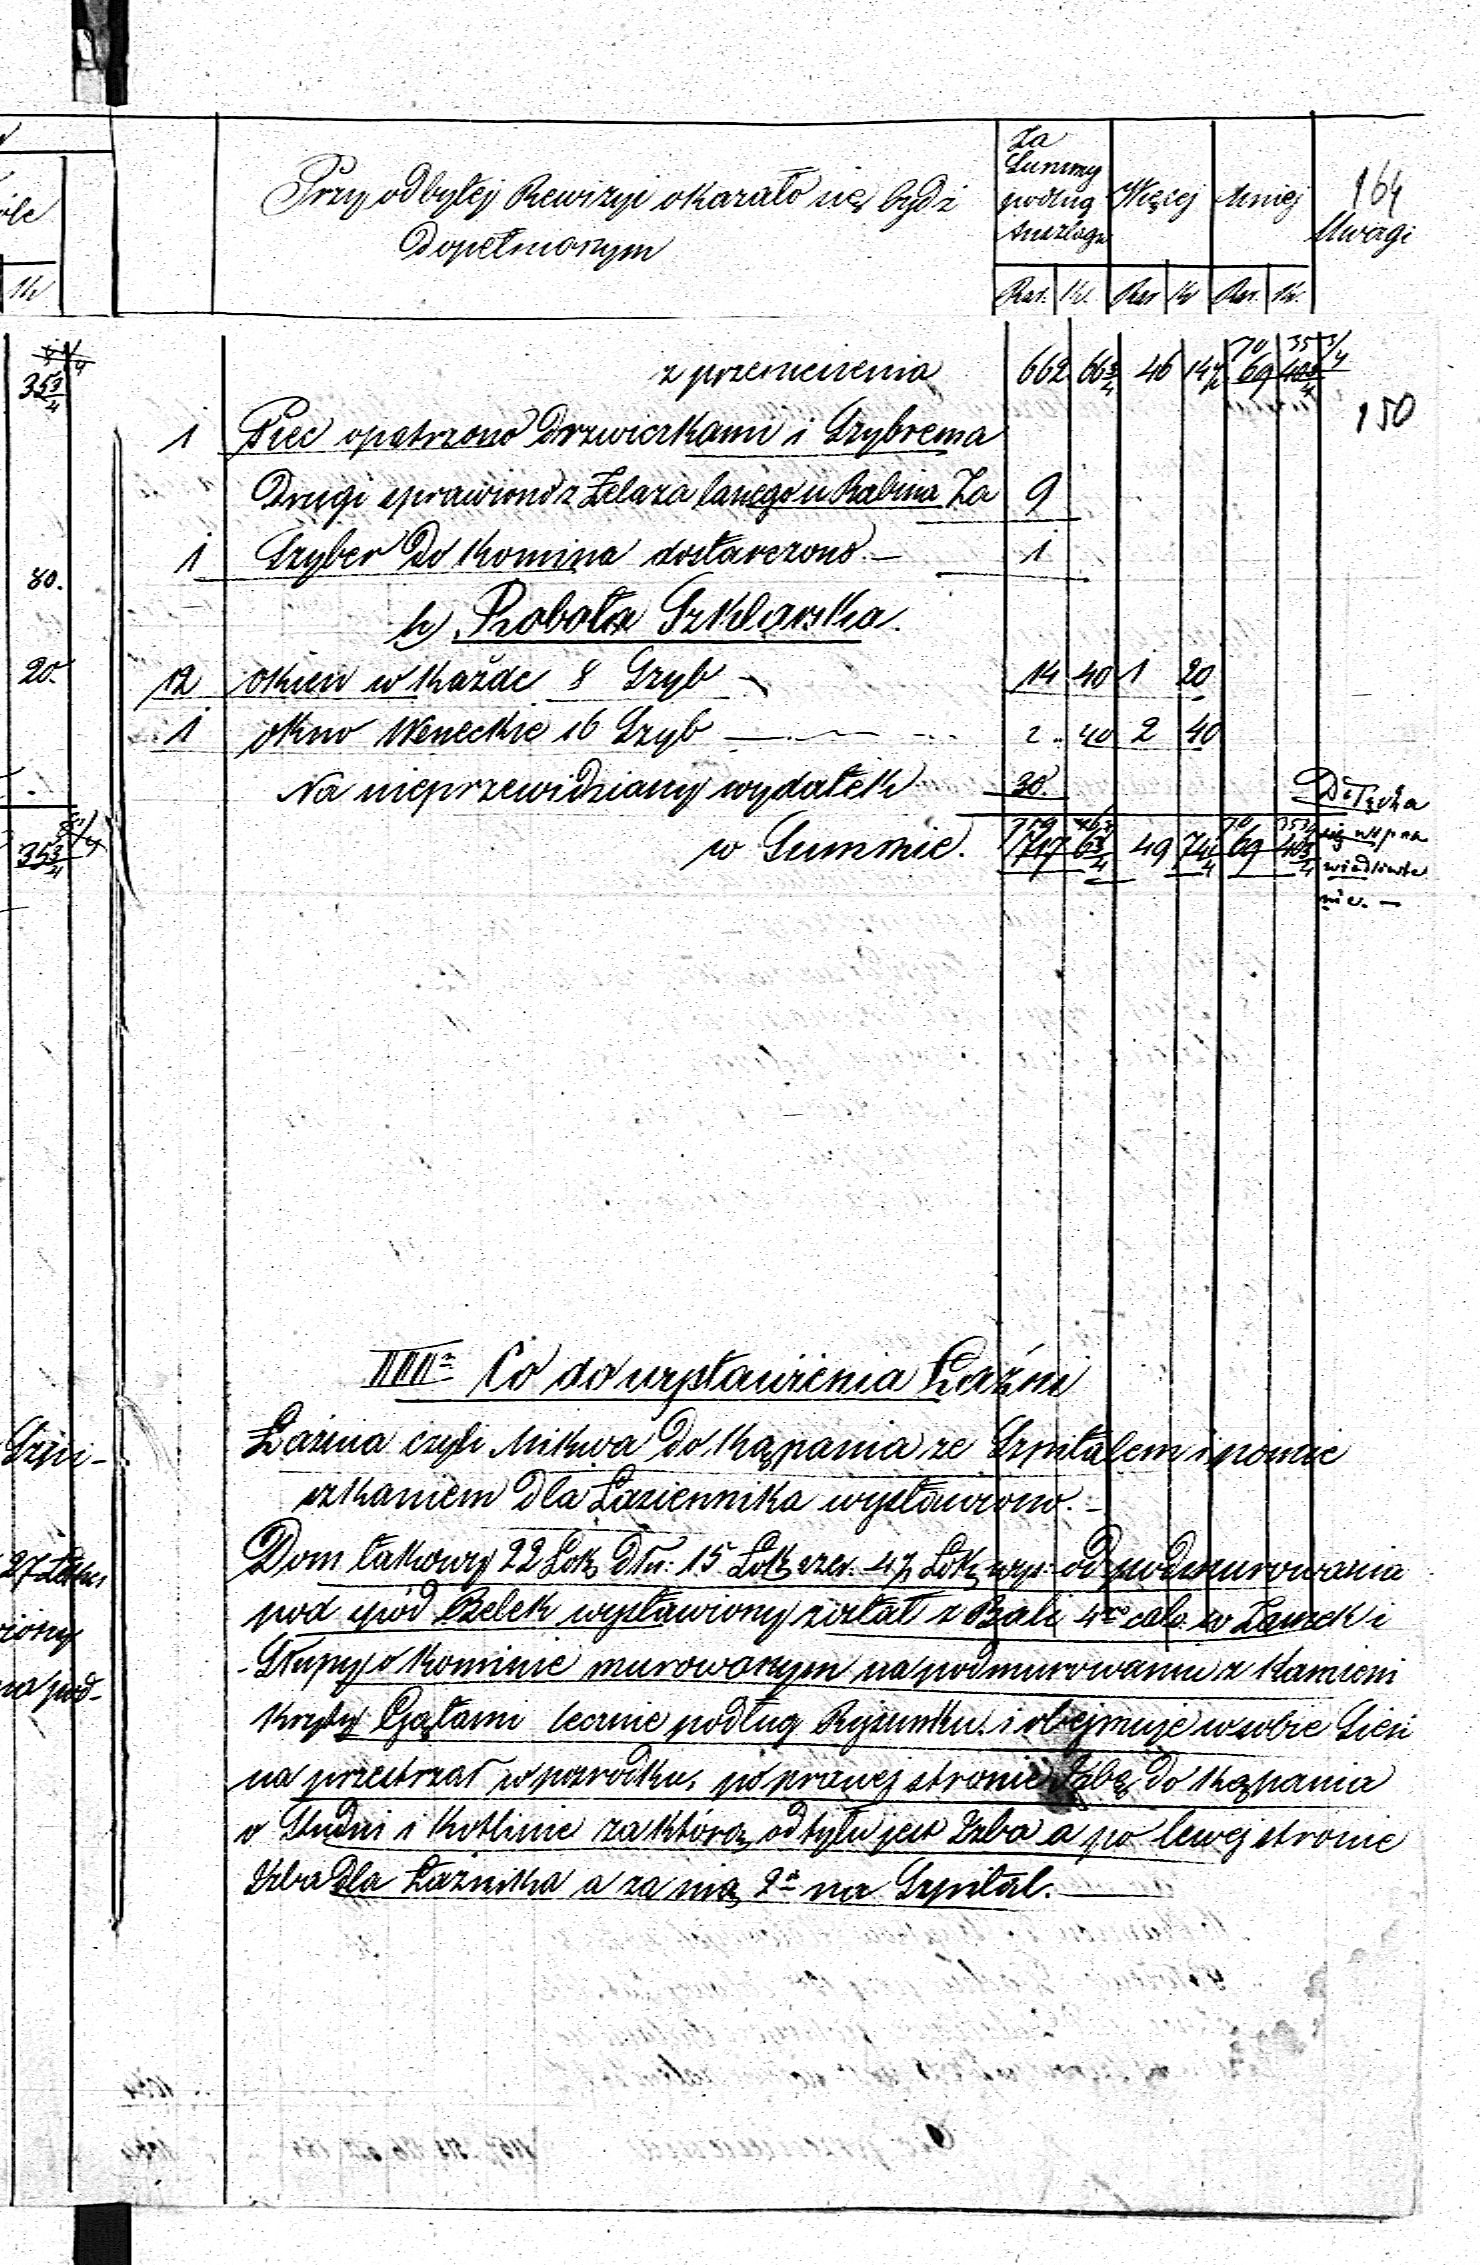 164
Przy odbytej Rewizyi okazało się bydź
dopełnionym
Za
Summy
podług
Anszlagu
Więcej
Mniej
Uwagi
Rsr. K. Rsr K Rsr. K.
z przeniesienia 662 66 3/4 46 14 1/4 69
150
1 Piec opatrzono Drzwiczkami i Szybrema
Drugi sprawiono z Żelaza lanego u Rabina Za 9
1 Szyber do Komina dostarczono.— 1
h, Robota Szklarska.
12 okien w każde 8 Szyb 14 40 1 20
1 okno Weneckie 16 Szyb 2 40 2 40
Na nieprzewidziany wydatek 30.
w Summie. 49 74 1/4 69
IIII Co do wystawienia Łaźni
Łaźnia czyli Mikwa do Kąpania ze Szpitalem i pomie
szkaniem dla Łaziennika wystawiono.—
Dom takowy 22 Łok. dłu: 15 Łok szer. 4 1/2 Łok wys: od podmurowania
pod spód Belek wystawiony został z Bali 4ro calo: w Zamek i
Słupy o Kominie murowanym na podmurowaniu z Kamieni
Kryty Gątami lecznie podług Rysunku i obejmuje w sobie Sień
na przestrzał w pośrodku, po prawej stronie Izbę do Kąpania
o Studni i Kotlinie za którą od tyłu jest Izba a po lewej stronie
Izba dla Łaźnika a za nią 2a na Szpital.—